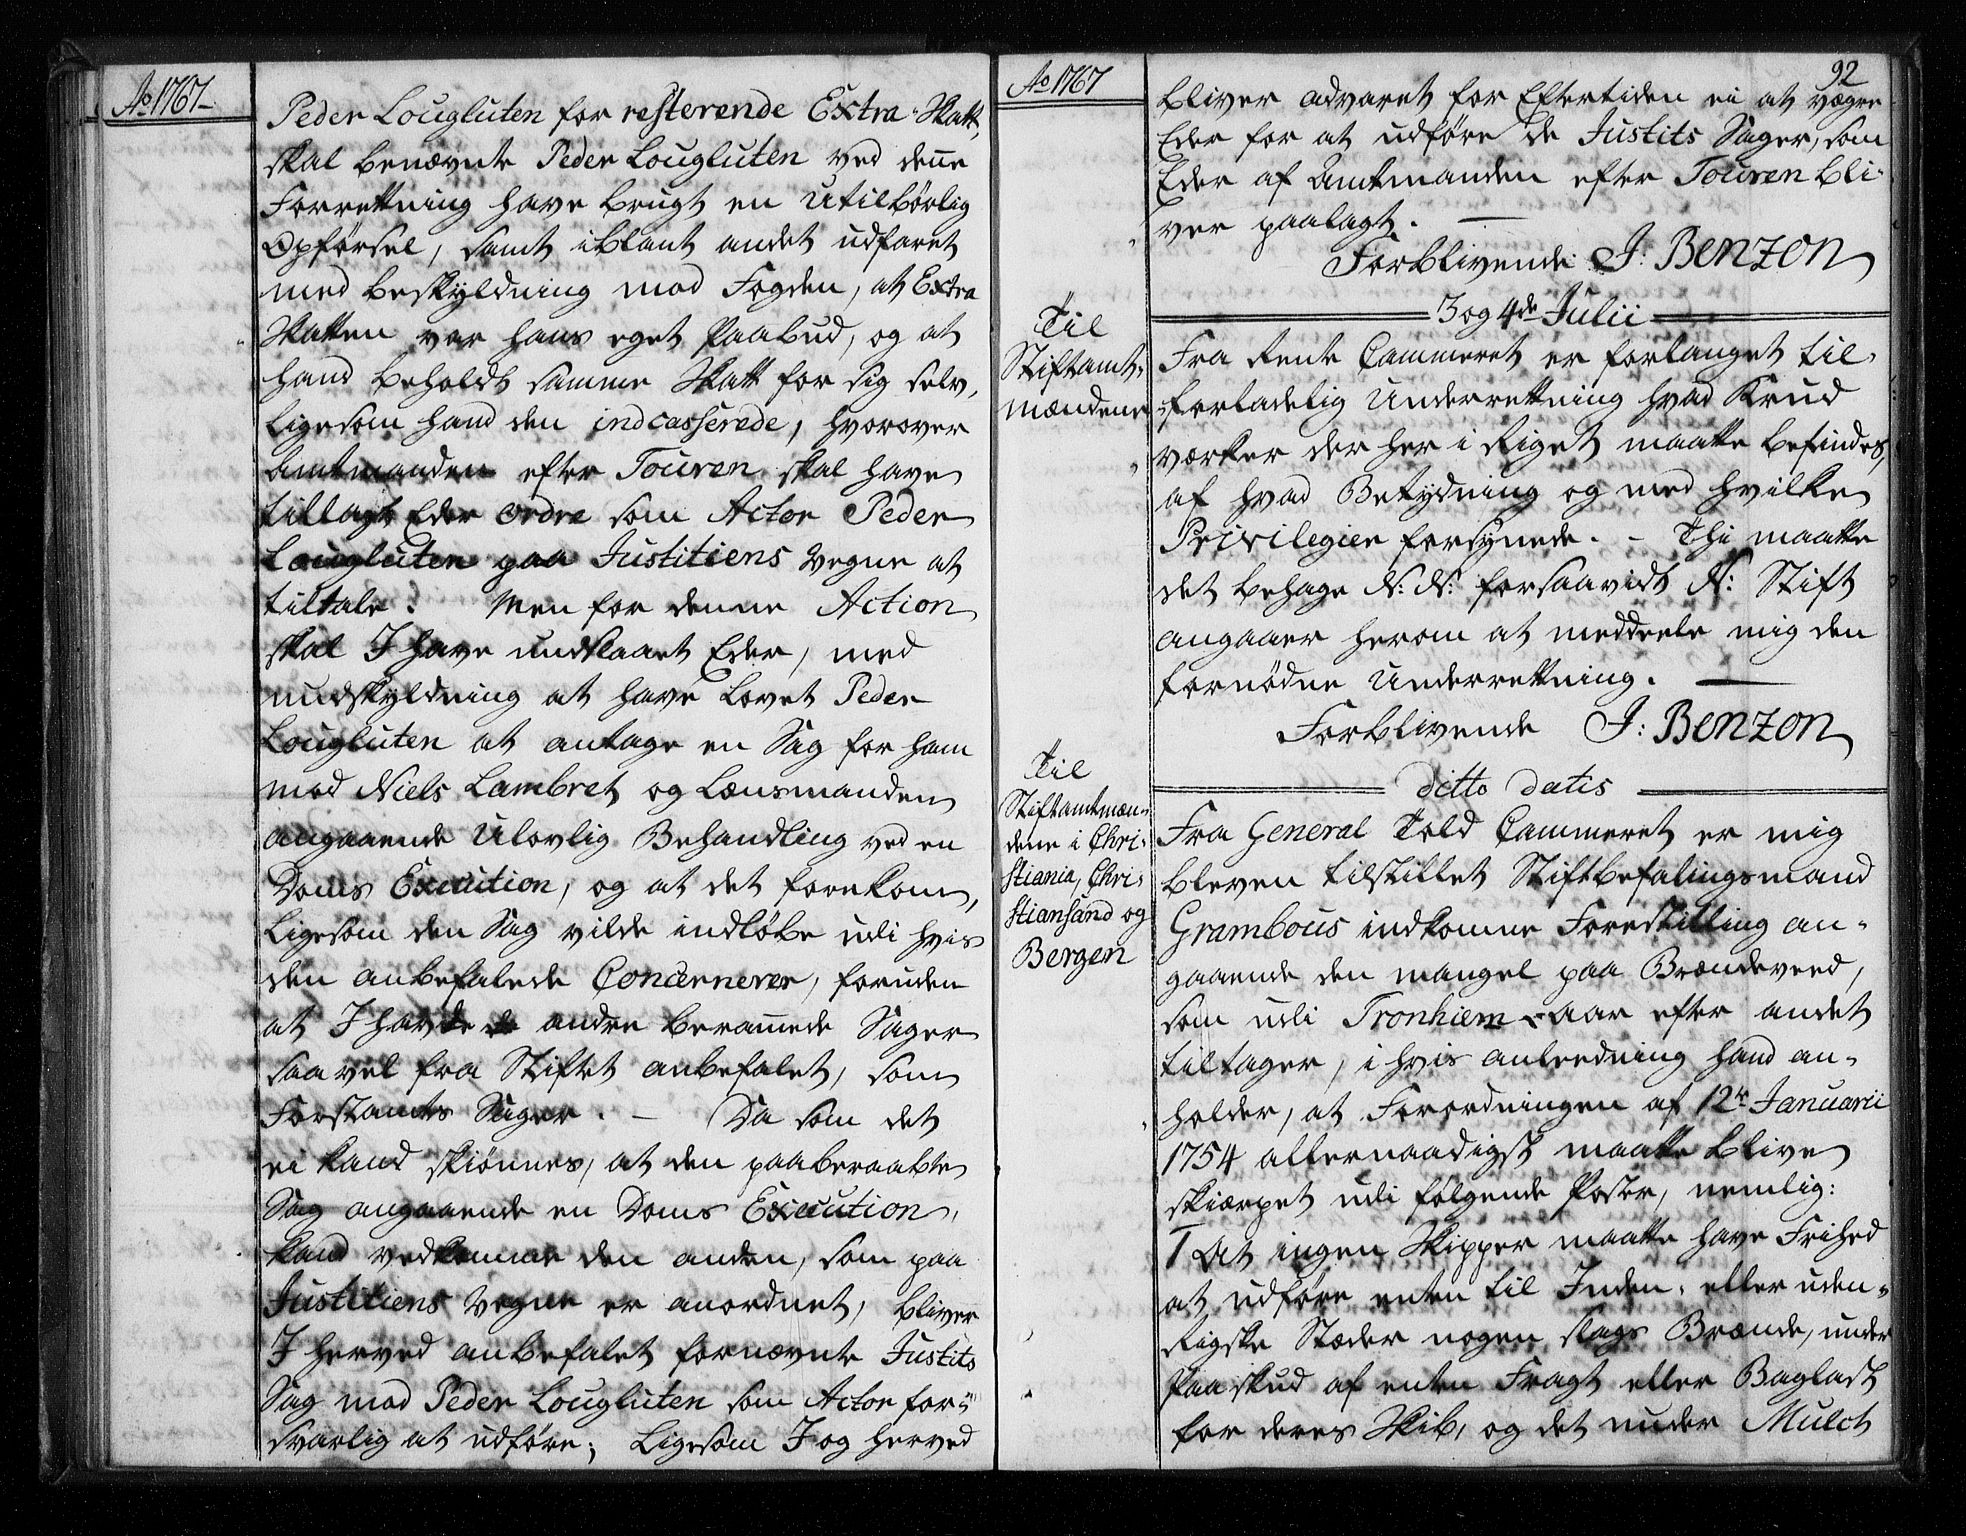 Ao 1767
Peder Lougluten for resterende Extra-Skatt,
skal benævnte Peder Lougluten ved deñe
Forrettning have brugt en utilbörlig
Opførsel, samt iblant andet udfaret
med beskyldning mod Fogden, at Extra
Skatten var hans eget Paabud, og at
hand beholdt samme Skatt for sig selv,
ligesom hand den indcasserede, hvorover
Amtmanden efter Touren skal have
tillagt Eder ordre som Actor Peder
Lougluten paa Justitiens vegne at
tiltale. Men for denne Action
skal I have undslaaet Eder, med
undskyldning at have lovet Peder
Lougluten at antage en Sag for ham
mod Niels Lambret og Lensmanden
angaaende Ulovlig Behandling ved en
Doms Execution, og at det forekom,
ligesom den Sag vilde indløbe udi hvis
den anbefalede Concernerer, foruden
at I havde andre berañede Sager
saavel fra Stiftet anbefalet, som
Forstamts Sager. – Da som det
ei kand skiønnes, at den paaberaabte
Sag angaaende en Doms Execution,
kand vedkomme den anden, som paa
Justitiens vegne er anordnet, bliver
I herved anbefalet fornævnte Justits
Sag mod Peder Lougluten som Actor for=
svarlig at udføre; Ligesom I og herved
Ao 1767
92
bliver advaret for Eftertiden ei at vægre
Eder for at udføre de Justits Sager, som
Eder af Amtmanden efter Touren bli-
ver paalagt. —
Forblivende J: Benzon
3 og 4de Julii
Til
Stiftamt-
mændene
Fra Rente Cammeret er forlanget til-
forladelig Underrettning hvad Krud
værker der her i Riget maatte befindes,
af hvad Betydning og med hvilke
Privilegier forsynede. – Thi maatte
det behage N: N: forsaavidt N: Stift
angaaer herom at meddeele mig den
fornødne Underrettning. —
Forblivende J: Benzon
ditto datis
Til
Stiftamtmæn-
dene i Chri-
stiania, Chri-
stiansand og
Bergen
Fra General Told Cammeret er mig
bleven tilstillet Stiftbefalingsmand
Grambous indkomne Forestilling an-
gaaende den mangel paa Brændeveed,
som udi Tronhiem aar efter andet
tiltager, i hvis anleedning hand an-
holder, at Forordningen af 12te Januarii
1754 allernaadigst maatte blive
skiærpet udi følgende Poster, nemlig:
1 At ingen Skipper maatte have Frihed
at udføre enten til Inden- eller uden-
Rigske Stæder nogen slags Brænde, under
Paaskud af enten Fragt eller Baglast
for deres Skib, og det under Mulct